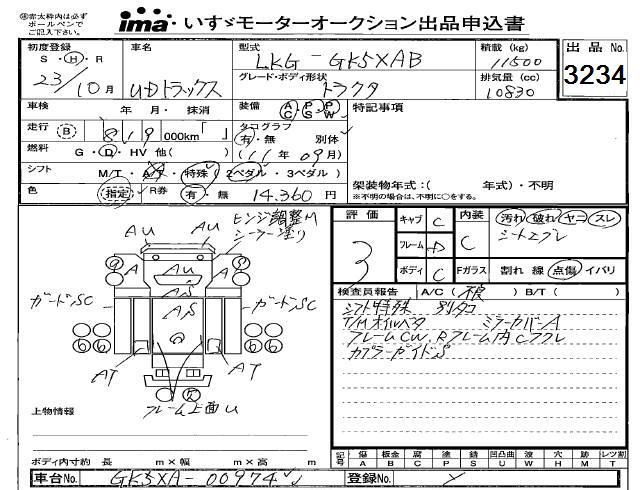 ㊟赤太枠内は必ず
ボールペンで
ご記入下さい。
ima・いすゞモーターオークション出品申込書
初度登録 車名 型式 積載 (kg) 出品 No.
S・H・R LKG-GK5XAB 11500
23/10月 UDトラックス グレード・ボディ形状 排気量 (cc) 3234
トラクタ 10830
車検 年・月・抹消 装備 AC・PS・PW 特記事項
走行 B 819 000km「 」 タコグラフ
有・無 別体
燃料 G・D・HV 他( ) (11年09月)
シフト M/T・A/T・特殊 (2ペダル・3ペダル) 架装物年式:( 年式)・不明
色 指定 R券 有・無 14.360円 ※不明の場合は、不明に○をする。
評価 3
キャブ C 内装 C 汚れ 破れ ヤニ スレ
フレーム D
ボディ C Fガラス 割れ 線 点傷 イバリ
検査員報告 A/C( ) B/T( )
シフト特殊 別タコ
T/Mオイルベタ ミラーカバーA
フレームCW、Rフレーム内Cフクレ
カプラーガイドS
ヒンジ調整
シーラー塗り
AU AU
A A
AS
AS
ガードSC ガードSC
AT AT
フレーム上面U
上物情報
ボディ内寸約 長 m×幅 m×高 m
記号 傷A 板金B 腐C 塗P 錆S 凹凸曲U 波W 穴H 跡M レンズ割T
車台No. GK5XA-00974 登録No.